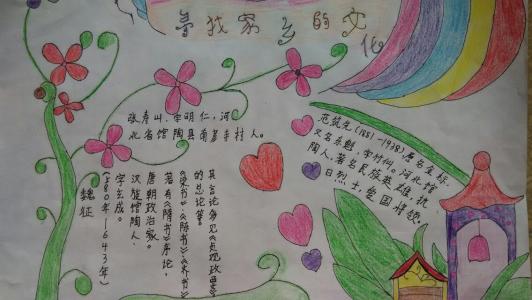 寻找家乡的文化
张寿山、字明仁,河
北省馆陶县南彦寺村人。
范筑先(1881-1938)原名金标,
又名夺魁,字竹仙。河北馆
陶人,著名民族英雄,抗
日烈士,爱国将领。
魏征
(580年-643年)
字玄成。
汉族馆陶人,
唐朝政治家。
著有《隋书》序论,
《梁书》《陈书》《齐书》
的总论等。
其言论多见《贞观政要》